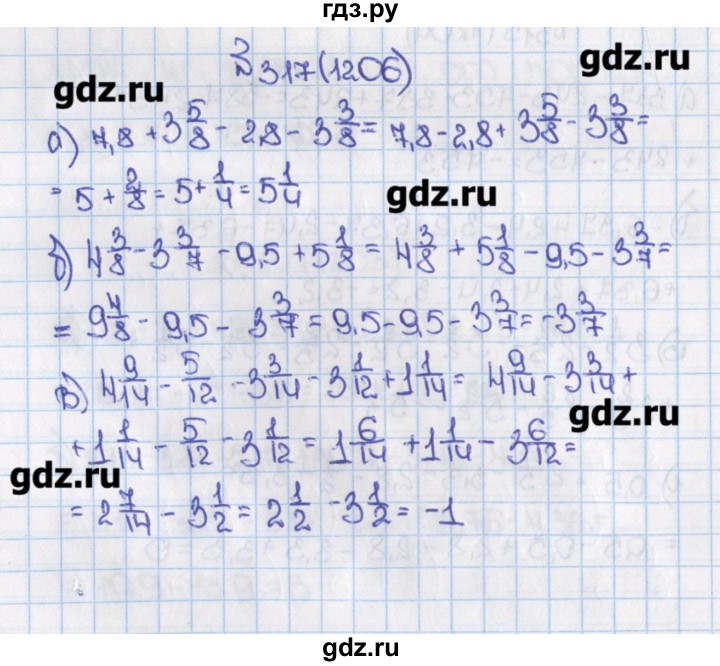 гдз.ру
№ 317(1206)
gdz.ru
gdz.ru
а) 7,8 + 3 5/8 - 2,8 - 3 3/8 = 7,8 - 2,8 + 3 5/8 - 3 3/8 =
= 5 + 2/8 = 5 + 1/4 = 5 1/4
gdz.ru
б) 4 3/8 - 3 3/7 - 9,5 + 5 1/8 = 4 3/8 + 5 1/8 - 9,5 - 3 3/7 =
= 9 4/8 - 9,5 - 3 3/7 = 9,5 - 9,5 - 3 3/7 = -3 3/7
в) 4 9/14 - 5/12 - 3 3/14 - 3 1/12 + 1 1/14 = 4 9/14 - 3 3/14 +
gdz.ru
+ 1 1/14 - 5/12 - 3 1/12 = 1 6/14 + 1 1/14 - 3 6/12 =
gdz.ru
= 2 7/14 - 3 1/2 = 2 1/2 - 3 1/2 = -1
gdz.ru